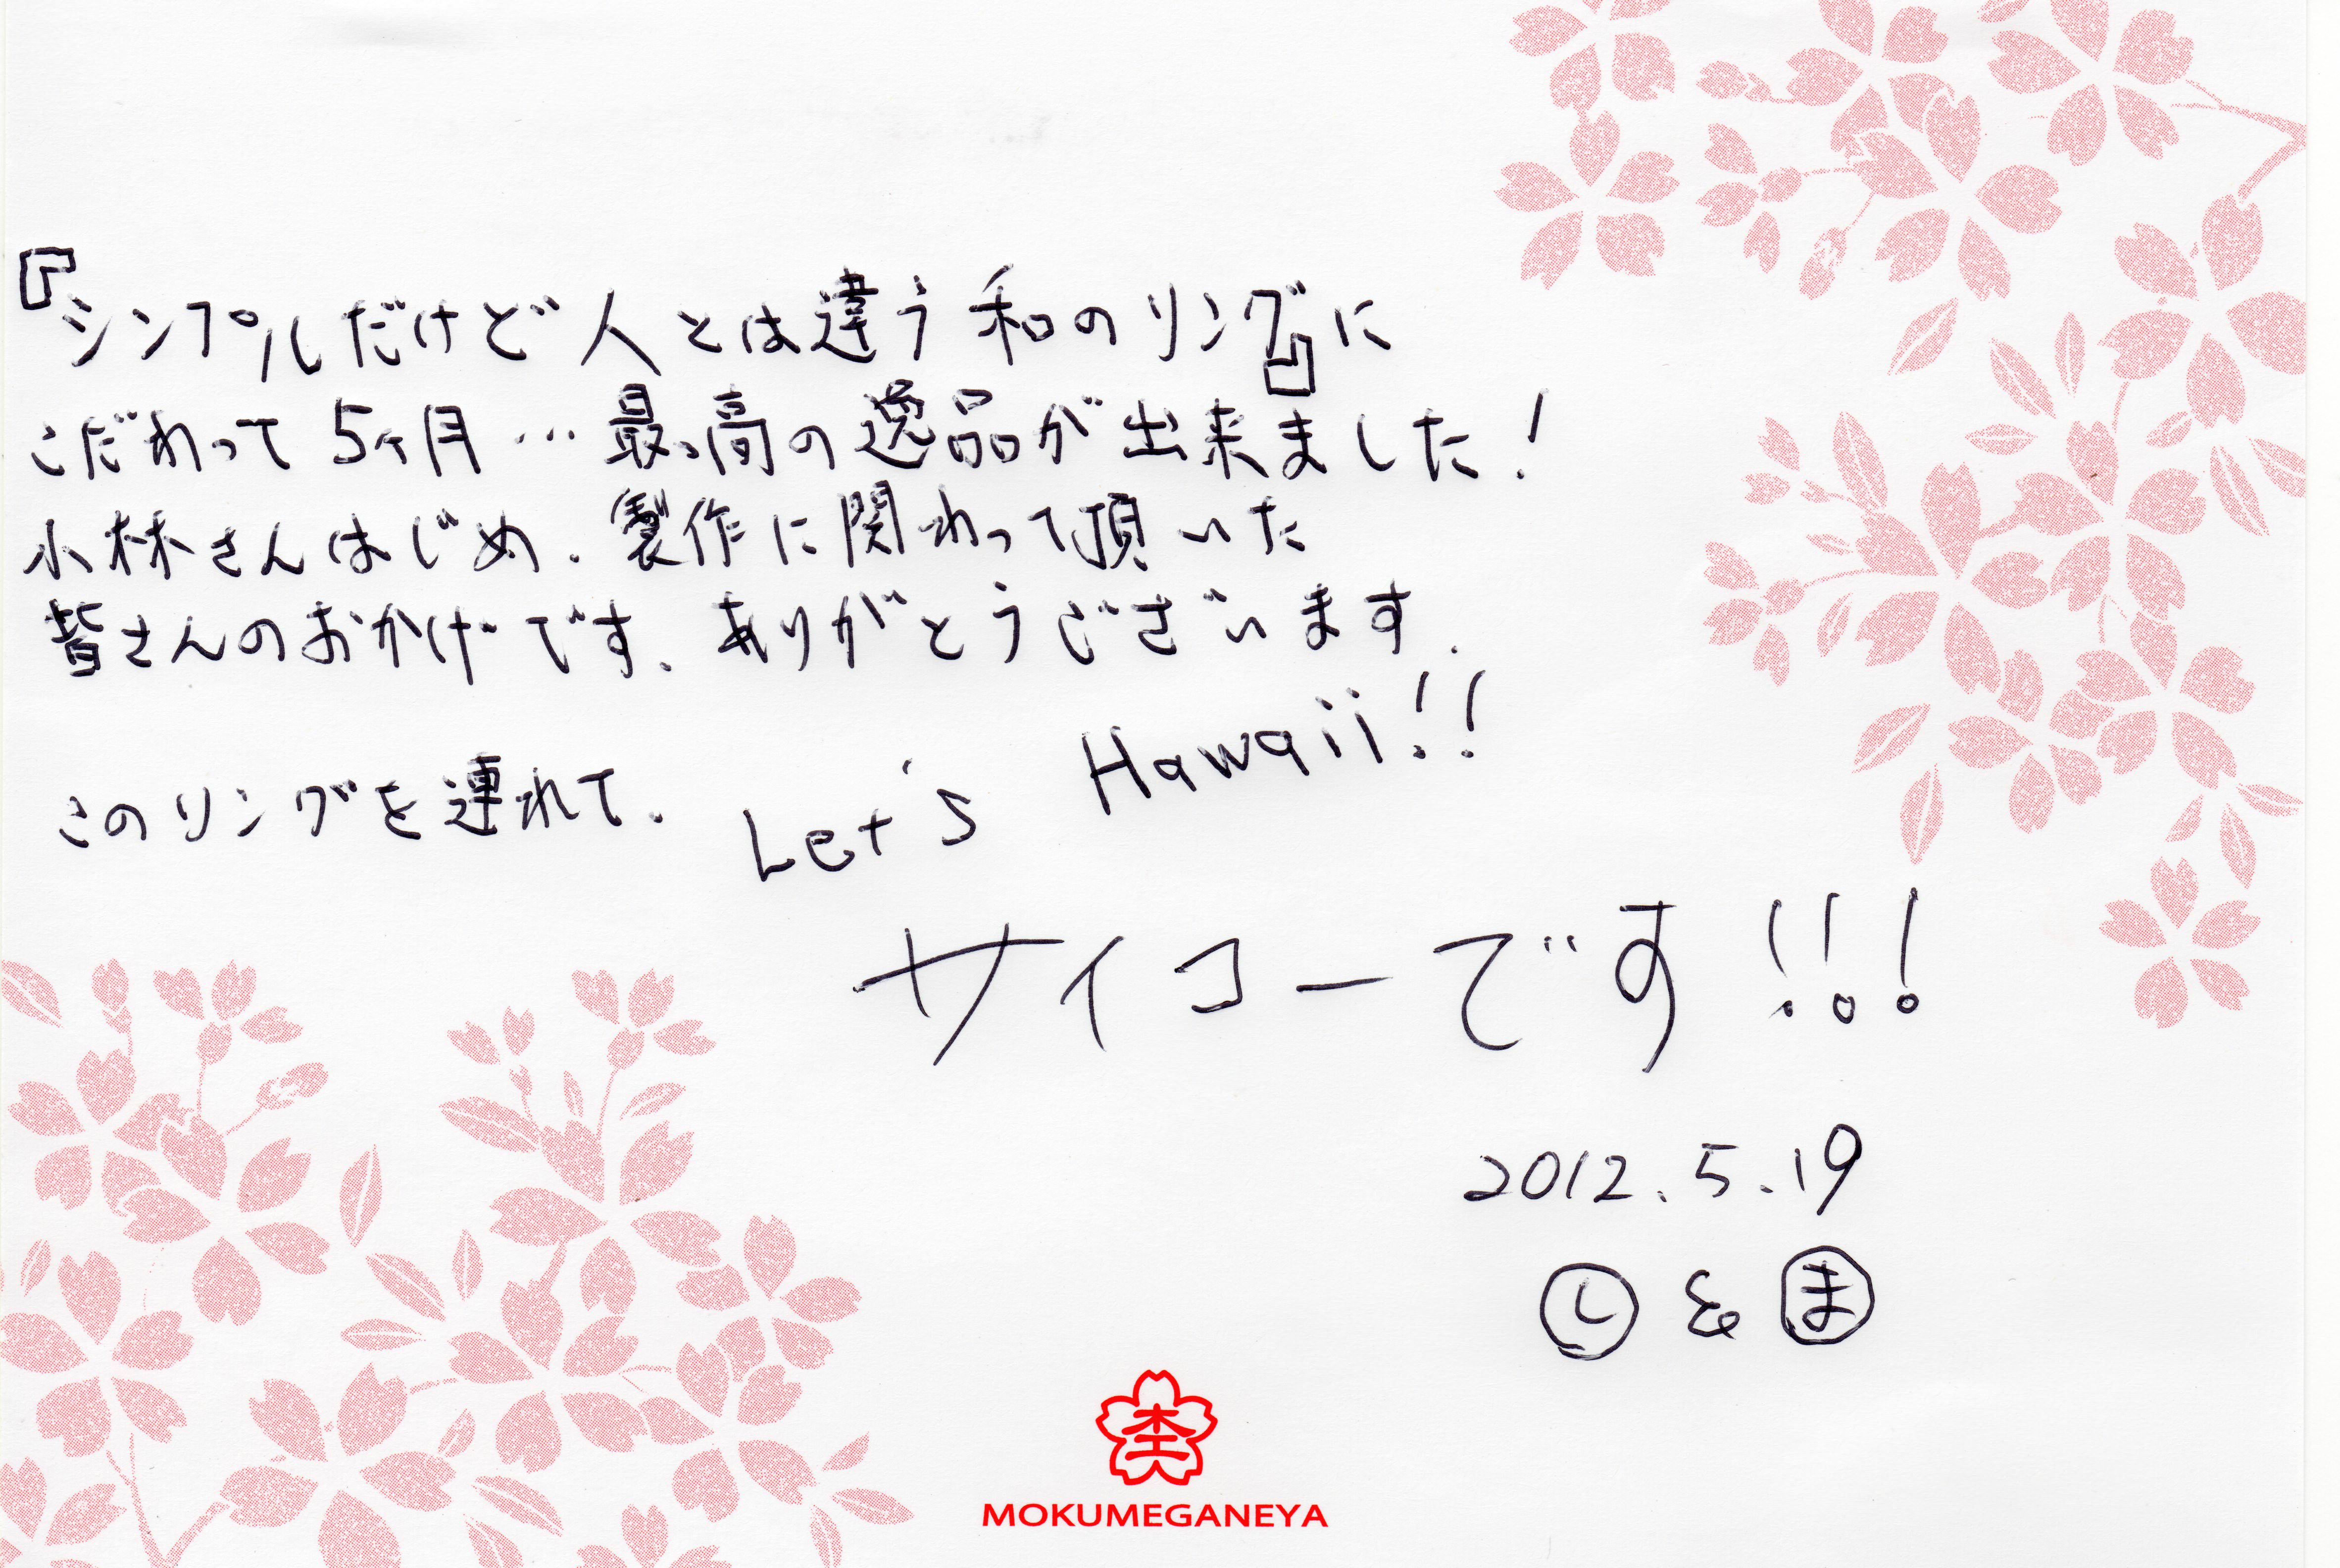 『シンプルだけど人とは違う和のリング』に
こだわって5ヶ月…最高の逸品が出来ました!
小林さんはじめ、製作に関わって頂いた
皆さんのおかげです。ありがとうございます。
このリングを連れて、Let's Hawaii!!
サイコーです!!!
2012.5.19
し & ま
杢
MOKUMEGANEYA